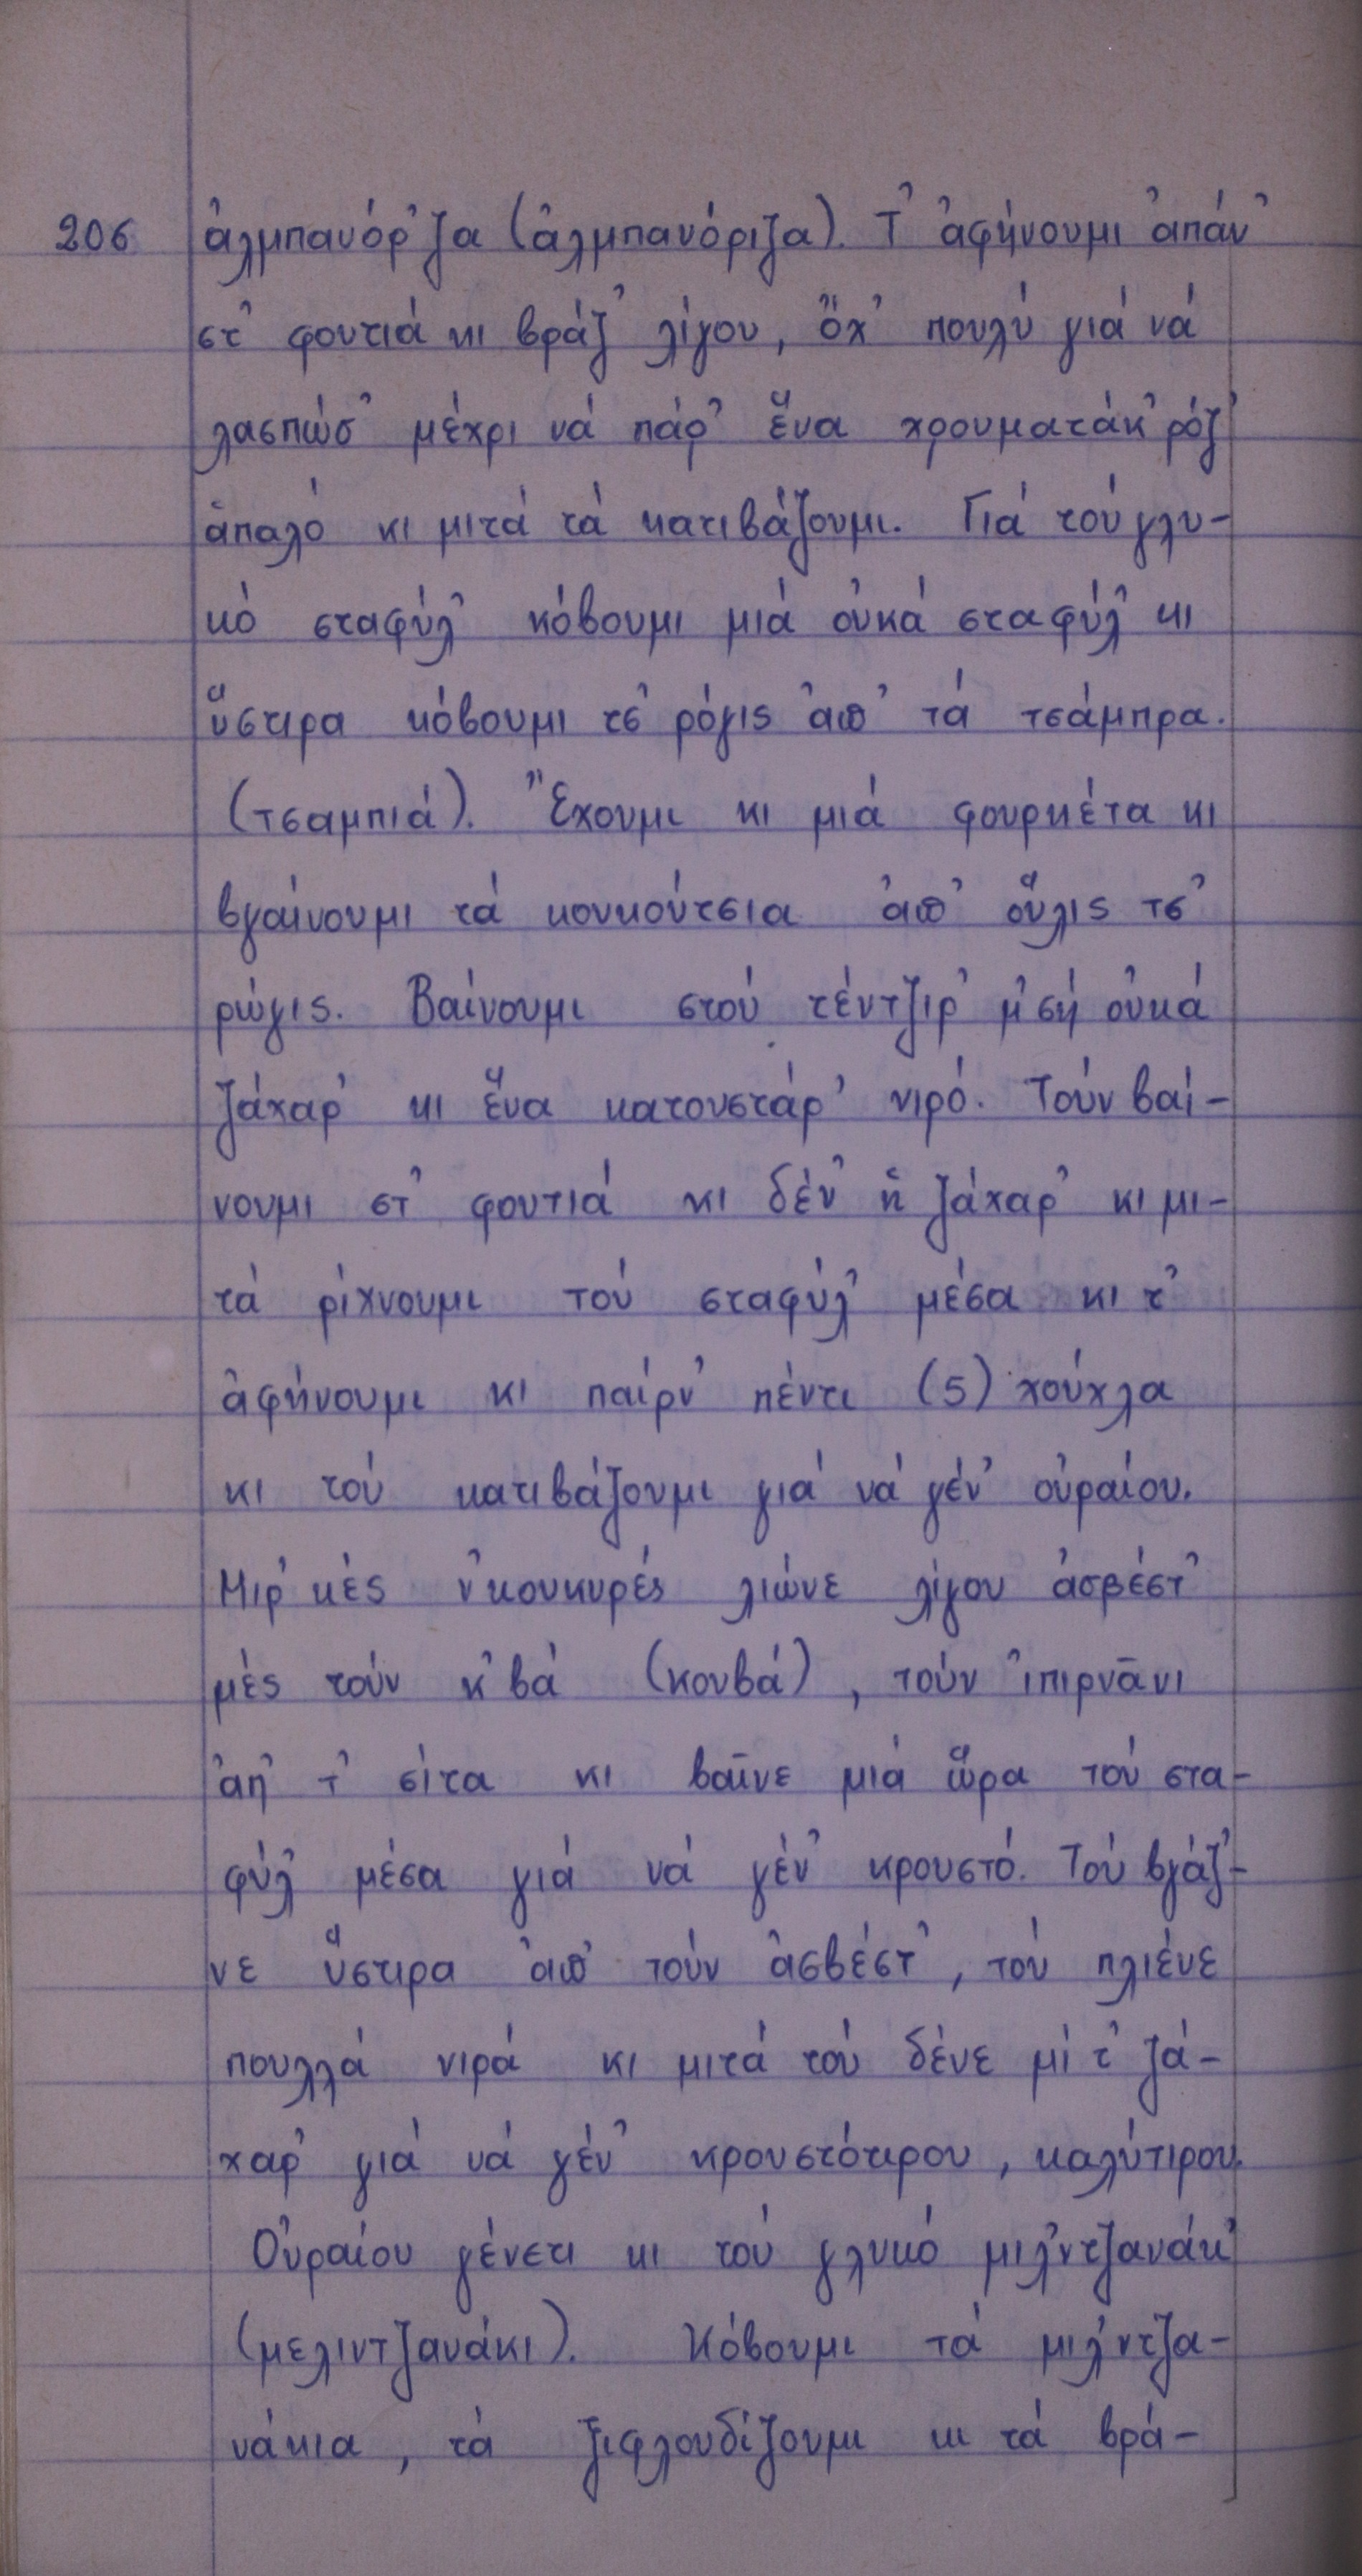 206 ἀλμπανόρ'ζα (ἀλμπανόριζα). Τ' ἀφήνουμι ἀπάν'
στ' φουτιά κι βράζ' λίγου, ὄχ' πουλύ γιά νά
λασπώσ' μέχρι νά πάρ' ἕνα χρουματάκ' ρόζ'
ἁπαλό κι μιτά τά κατιβάζουμι. Γιά τού γλυ-
κό σταφύλ' κόβουμι μιά οὐκά σταφύλ' κι
ὕστιρα κόβουμι τσ' ρόγις ἀπ' τά τσάμπρα.
(τσαμπιά). Ἔχουμι κι μιά φουρκέτα κι
βγαίνουμι τά κουκούτσια ἀπ' οὕλις τσ'
ρώγις. Βαίνουμι στού τέντζιρ' μ'σή οὐκά
ζάχαρ' κι ἕνα κατουστάρ' νιρό. Τούν βαί-
νουμι στ' φουτιά κι δέν' ἡ ζάχαρ' κι μι-
τά ρίχνουμι τού σταφύλ' μέσα κι τ'
ἀφήνουμι κι παίρν' πέντι (5) χούχλα
κι τού κατιβάζουμι γιά νά γέν' οὐραίου.
Μιρ'κές ν'κουκυρές λιώνε λίγου ἀσβέστ'
μές τούν κ'βά (κουβά), τούν ἰπιρνᾶνι
ἀπ' τ' σίτα κι βαῖνε μιά ὥρα τού στα-
φύλ' μέσα γιά νά γέν' κρουστό. Τού βγάζ'-
νε ὕστιρα ἀπ' τούν ἀσβέστ', τού πλιένε
πουλλά νιρά κι μιτά τού δένε μί τ' ζά-
χαρ' γιά νά γέν' κρουστότιρου, καλύτιρου.
Οὐραίου γένετι κι τού γλυκό μιλ'ντζανάκ'
(μελιντζανάκι). Κόβουμι τά μιλ'ντζα-
νάκια, τά ξιφλουδίζουμι κι τά βρά-